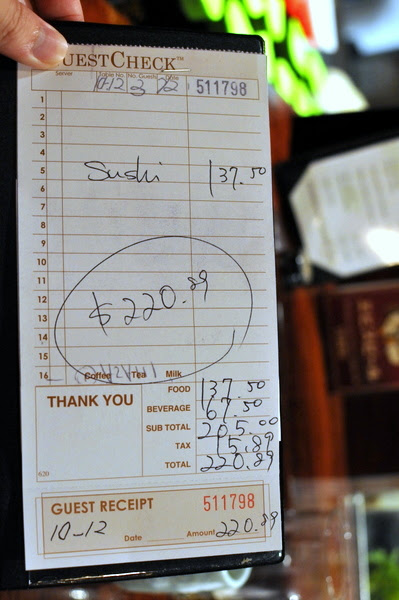 GUESTCHECK™
Server Table No. No. Guests Date
10-12 3 511798
1
2
3
4
5 Sushi 137.50
6
7
8
9
10
11
12 $220.89
13
14
15
16 Coffee Tea Milk
THANK YOU
FOOD 137.50
BEVERAGE 67.50
SUB TOTAL 205.00
TAX 15.89
TOTAL 220.89
620
GUEST RECEIPT 511798
10-12 Date Amount 220.89